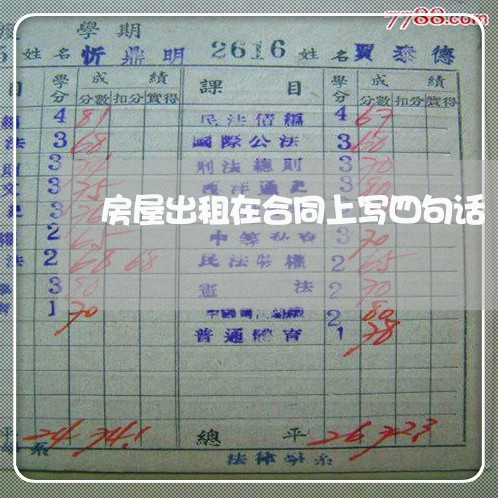 7788.com
學期
姓名 忻鼎明 2616 姓名 賈泰德
目 學分 成績 課目 學分 成績
分數 扣分 實得 分數 扣分 實得
4 81 民法債編 4 67
法 3 68 國際公法 3 60
3 刑法總則 3 70
3 75 西洋通史 3 80
房屋出租在合同上写四句话
2 65 3 70
法 2 68 68 民法物權 2 65
3 80 憲法 2 70
1 70 2 80
普通體育 1 78
平 24 74.1 總平 26 72.3
系 法律學系